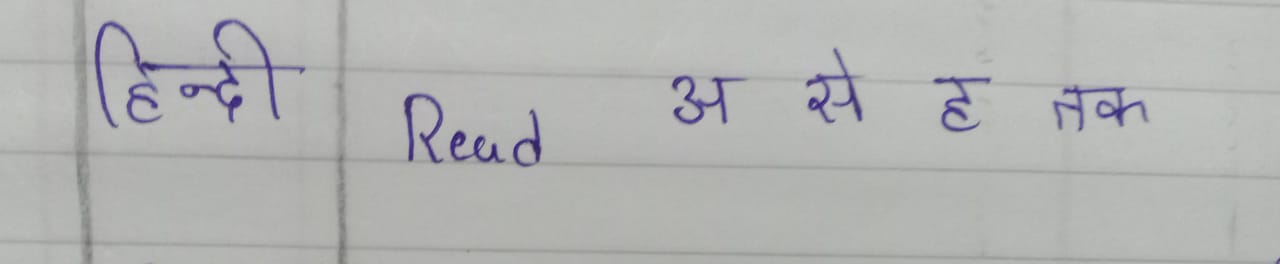 हिन्दी Read अ से ह तक